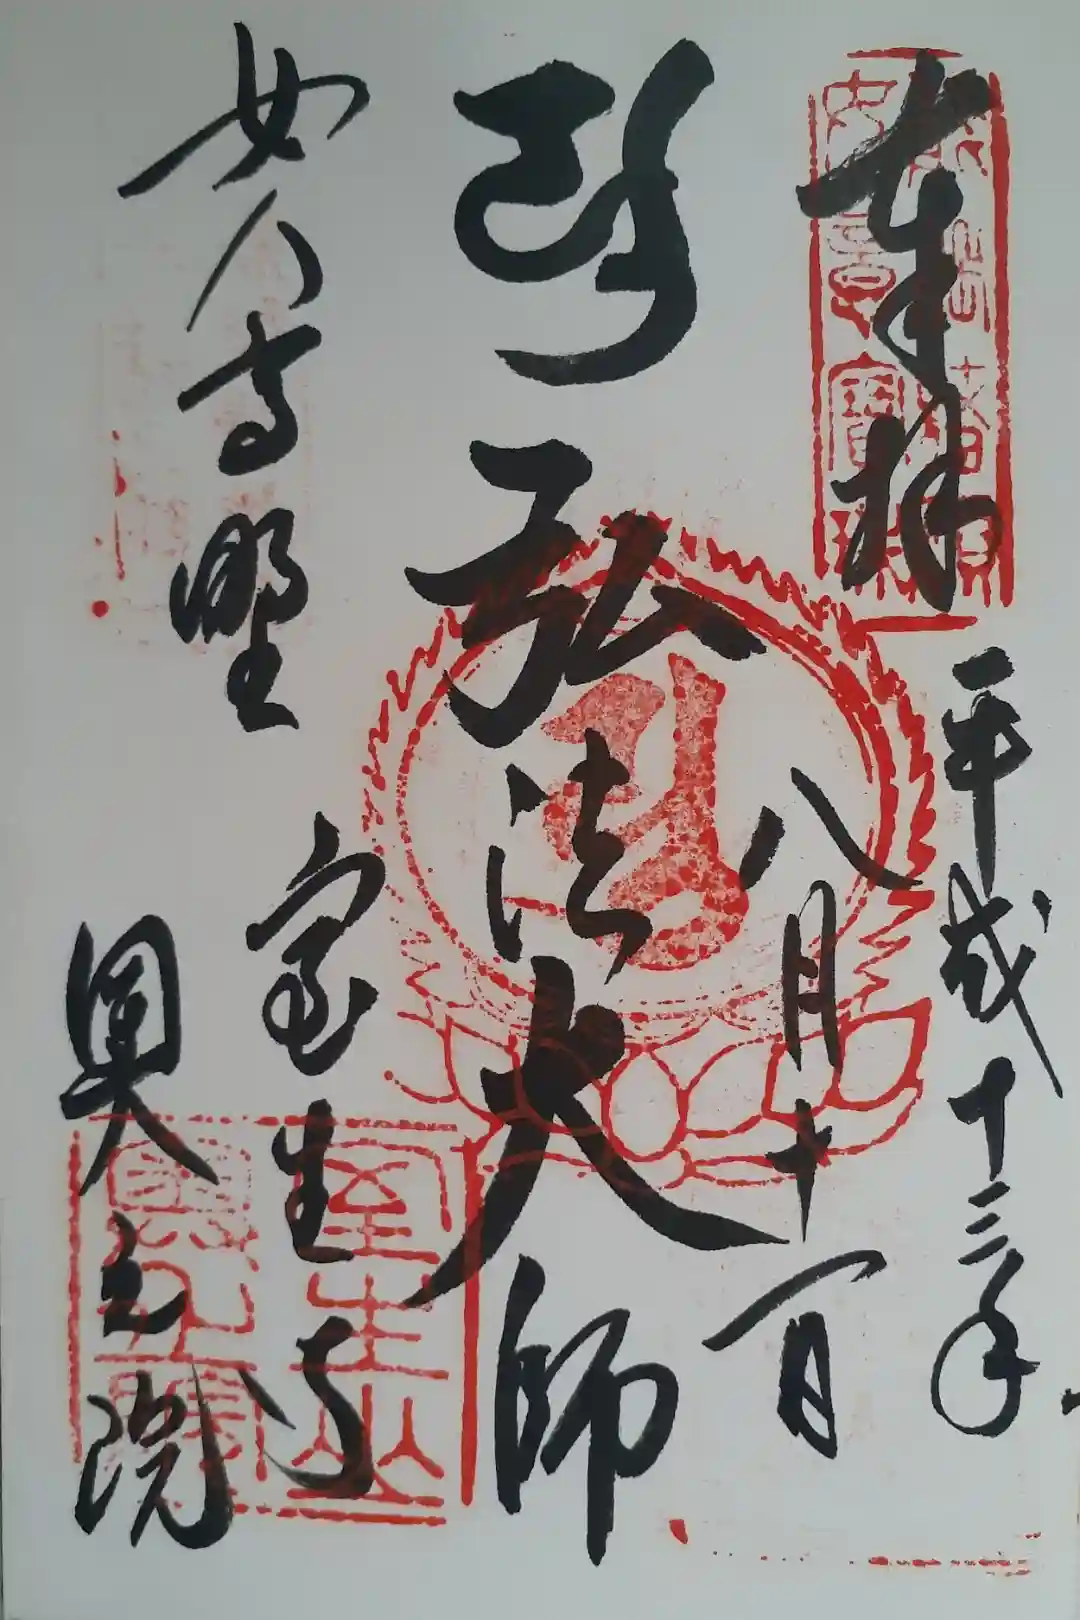 奉拝
平成十三年
八月十一日
弘法大師
女人高野
室生寺
奥之院
室生山